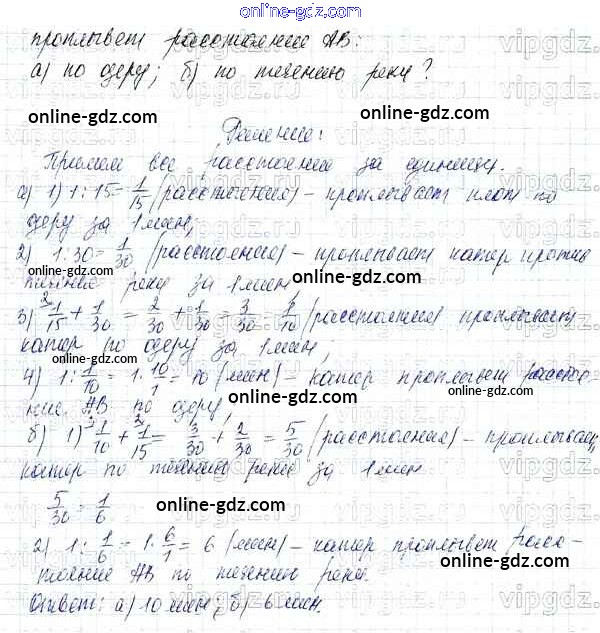 online-gdz.com
проплывет расстояние AB:
а) по озеру; б) по течению реки?
online-gdz.com
online-gdz.com
Решение:
Примем все расстояние за единицу.
а) 1) 1:15=1/15 (расстояния) – проплывает плот по
озеру за 1 мин;
2) 1:30=1/30 (расстояния) – проплывает катер против
течения реки за 1 мин
online-gdz.com
online-gdz.com
3) 1/15 + 1/30 = 2/30 + 1/30 = 3/30 = 1/10 (расстояния) проплывает
катер по озеру за 1 мин;
online-gdz.com
4) 1:1/10 = 1·10/1 = 10 (мин) – катер проплывет расстоя-
ние AB по озеру;
online-gdz.com
б) 1) 1/10 + 1/15 = 3/30 + 2/30 = 5/30 (расстояния) – проплывает
катер по течению реки за 1 мин.
online-gdz.com
5/30 = 1/6
online-gdz.com
2) 1:1/6 = 1·6/1 = 6 (мин) – катер проплывет расс-
тояние AB по течению реки.
online-gdz.com
online-gdz.com
Ответ: а) 10 мин; б) 6 мин.
online-gdz.com